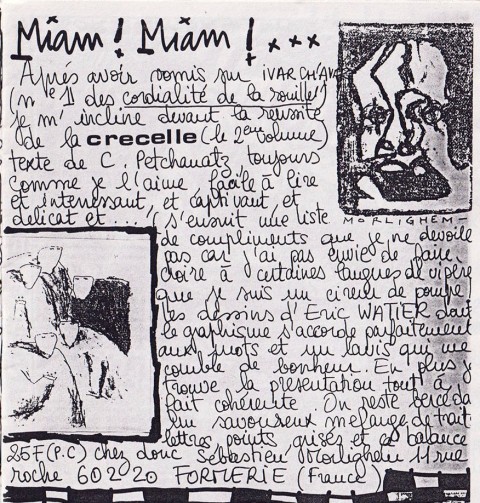 Miam! Miam!...
Après avoir vomis sur IVAR CH'AVAR
(n° 1 des cordialité de la rouille)
je m'incline devant la réussite
de la crecelle (le 2ème volume)
texte de C. Petchanatz toujours
comme je l'aime, facile à lire
et interessant, et captivant et
delicat et ...' (s'ensuit une liste
MORLIGHEM-
de compliments que je ne devoile
pas car j'ai pas envie de faire
croire à certaines langues de vipère
que je suis un cireur de pompe)
les dessins d'Eric WATIER dont
le graphisme s'accorde parfaitement
aux mots et un lavis qui me
comble de bonheur. En plus je
trouve la presentation tout à
fait cohérente. On reste bercé da
un savoureux melange de trait
lettres points grisés et ça balance
25F (P.C) chez donc Sébastien Morlighem 11 rue
roche 60220 FORMERIE (France)